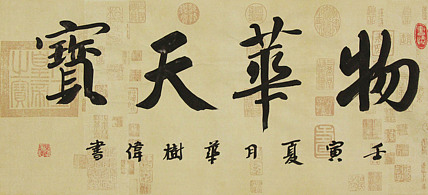 物華天寶
壬寅夏月華樹偉書